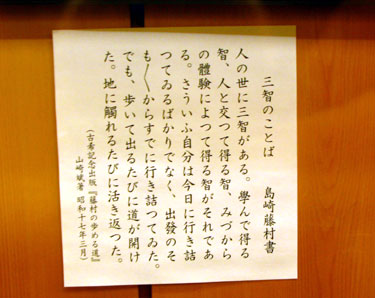 三智のことば　島崎藤村書
人の世に三智がある。學んで得る
智、人と交つて得る智、みづから
の體驗によつて得る智がそれであ
る。さういふ自分は今日に行き詰
つてゐるばかりでなく、出發のそ
も〳〵からすでに行き詰つてゐた。
でも、歩いて出るたびに道が開け
た。地に觸れるたびに活き返つた。
（古希記念出版『藤村の歩める道』
山崎斌著 昭和十七年三月）